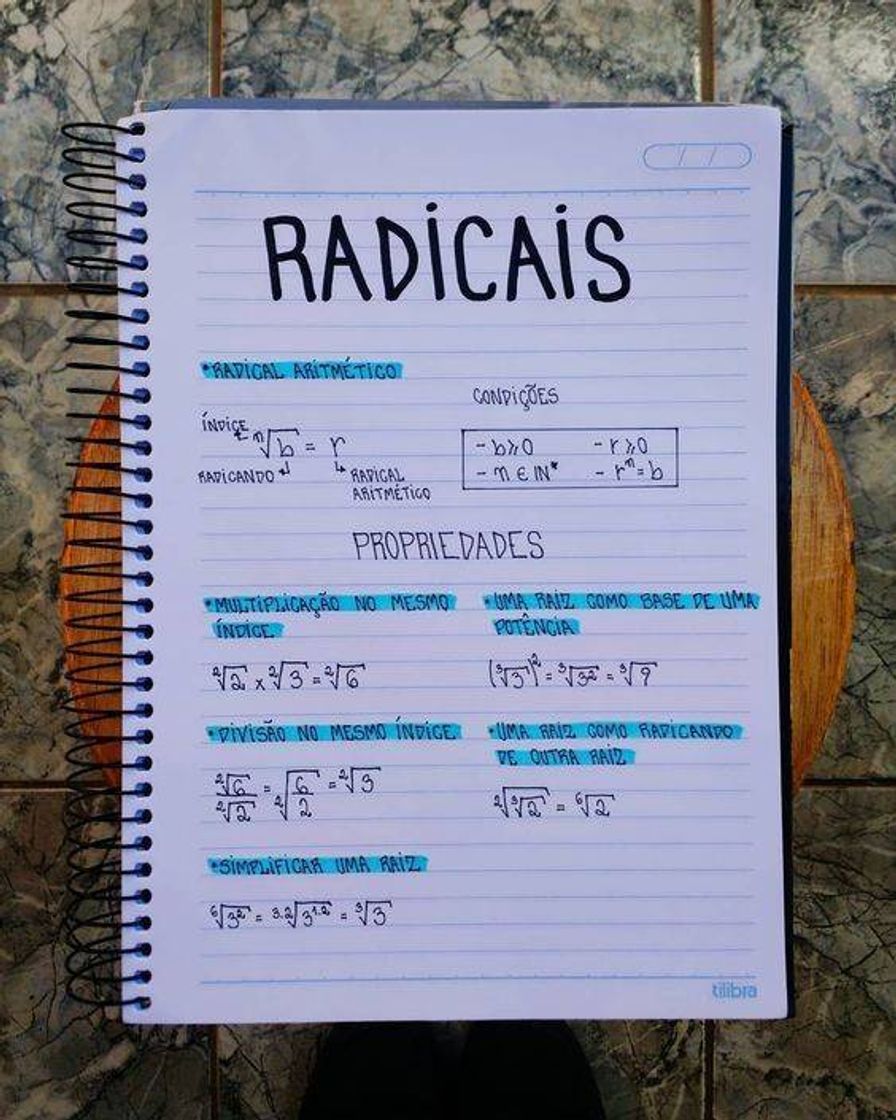 RADICAIS
•RADICAL ARITMÉTICO
CONDIÇÕES
ÍNDICE
ⁿ√b = r
RADICANDO
RADICAL
ARITMÉTICO
- b⩾0 - r⩾0
- n ∈ IN* - rⁿ=b
PROPRIEDADES
•MULTIPLICAÇÃO NO MESMO
ÍNDICE
²√2 x ²√3 = ²√6
•UMA RAIZ COMO BASE DE UMA
POTÊNCIA
(³√3¹)² = ³√3² = ³√9
•DIVISÃO NO MESMO ÍNDICE
²√6 / ²√2 = ²√(6/2) = ²√3
•UMA RAIZ COMO RADICANDO
DE OUTRA RAIZ
²√³√2 = ⁶√2
•SIMPLIFICAR UMA RAIZ
⁶√3² = ³·²√3¹·² = ³√3
tilibra